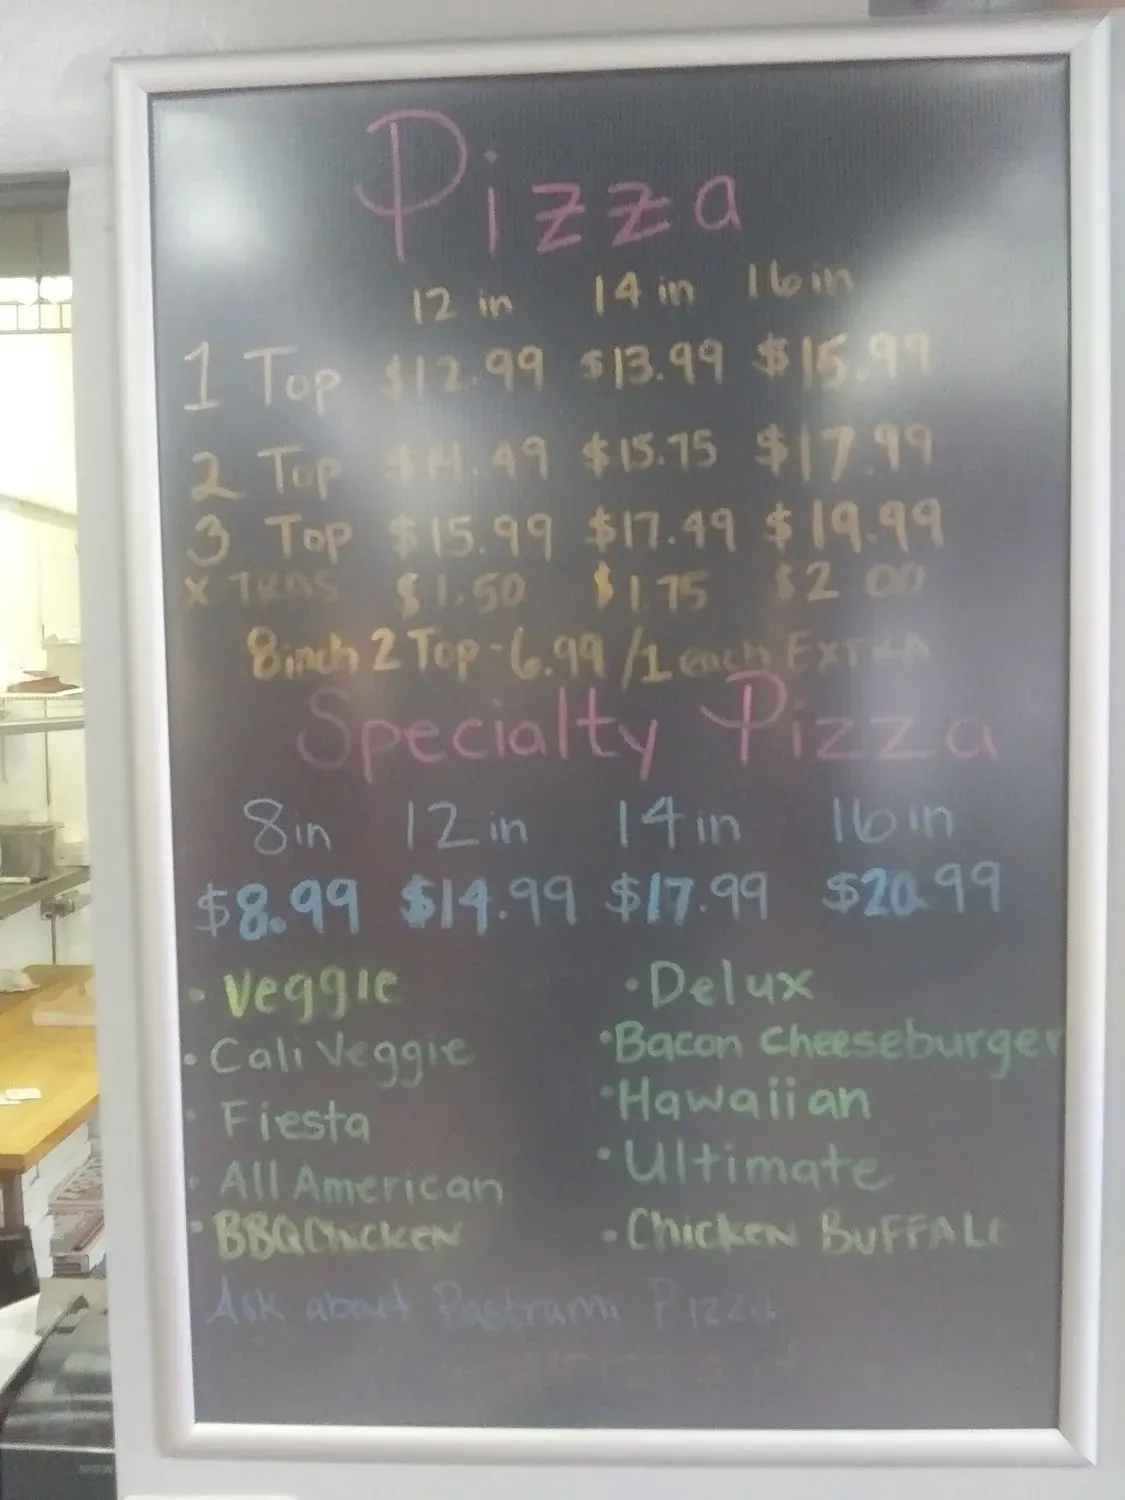 Pizza
12 in 14 in 16 in
1 Top $12.99 $13.99 $15.99
2 Top $14.49 $15.75 $17.99
3 Top $15.99 $17.49 $19.99
X TRAS $1.50 $1.75 $2.00
8inch 2 Top - 6.99 / 1 each EXTRA
Specialty Pizza
8in 12 in 14 in 16 in
$8.99 $14.99 $17.99 $20.99
• Veggie • Delux
• Cali Veggie • Bacon Cheeseburger
• Fiesta • Hawaiian
• All American • Ultimate
• BBQ Chicken • Chicken BUFFALO
Ask about Pastrami Pizza